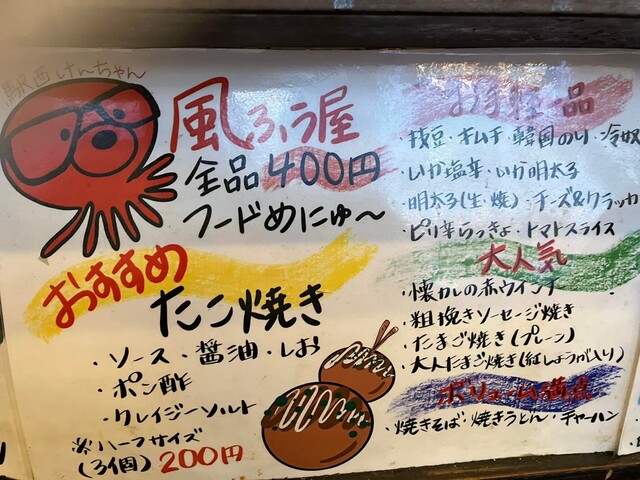 駅西けんちゃん
風ふう屋
全品400円
フードめにゅ〜
おすすめ
たこ焼き
・ソース・醤油・しお
・ポン酢
・クレイジーソルト
※ハーフサイズ
(3個)200円
お手軽品
・枝豆・キムチ・韓国のり・冷奴
・いか塩辛・いか明太子
・明太子(生・焼)・チーズ&クラッカ
・ピリ辛らっきょ・トマトスライス
大人気
・懐カしの赤ウインナ
・粗挽きソーセージ焼き
・たまご焼き(プレーン)
・大人たまご焼き(紅しょうが入り)
ボリューム満点
・焼きそば・焼きうどん・チャーハン